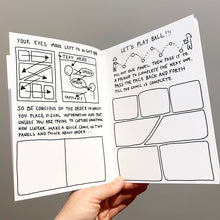 YOUR EYES MOVE LEFT TO RIGHT
TEXT HERE
SO BE CONSCIOUS OF THE ORDER IN WHICH
YOU PLACE VISUAL INFORMATION AND TEXT
UNLESS YOU ARE TRYING TO CAPTURE SOMETHING
NON LINEAR. MAKE A QUICK COMIC OF TWO
PANELS AND THINK ABOUT ORDER
LET'S PLAY BALL!!
FILL OUT ONE PANEL, THEN PASS IT TO
A FRIEND TO COMPLETE THE NEXT ONE.
PASS THE PAGE BACK AND FORTH
TILL THE COMIC IS COMPLETE.